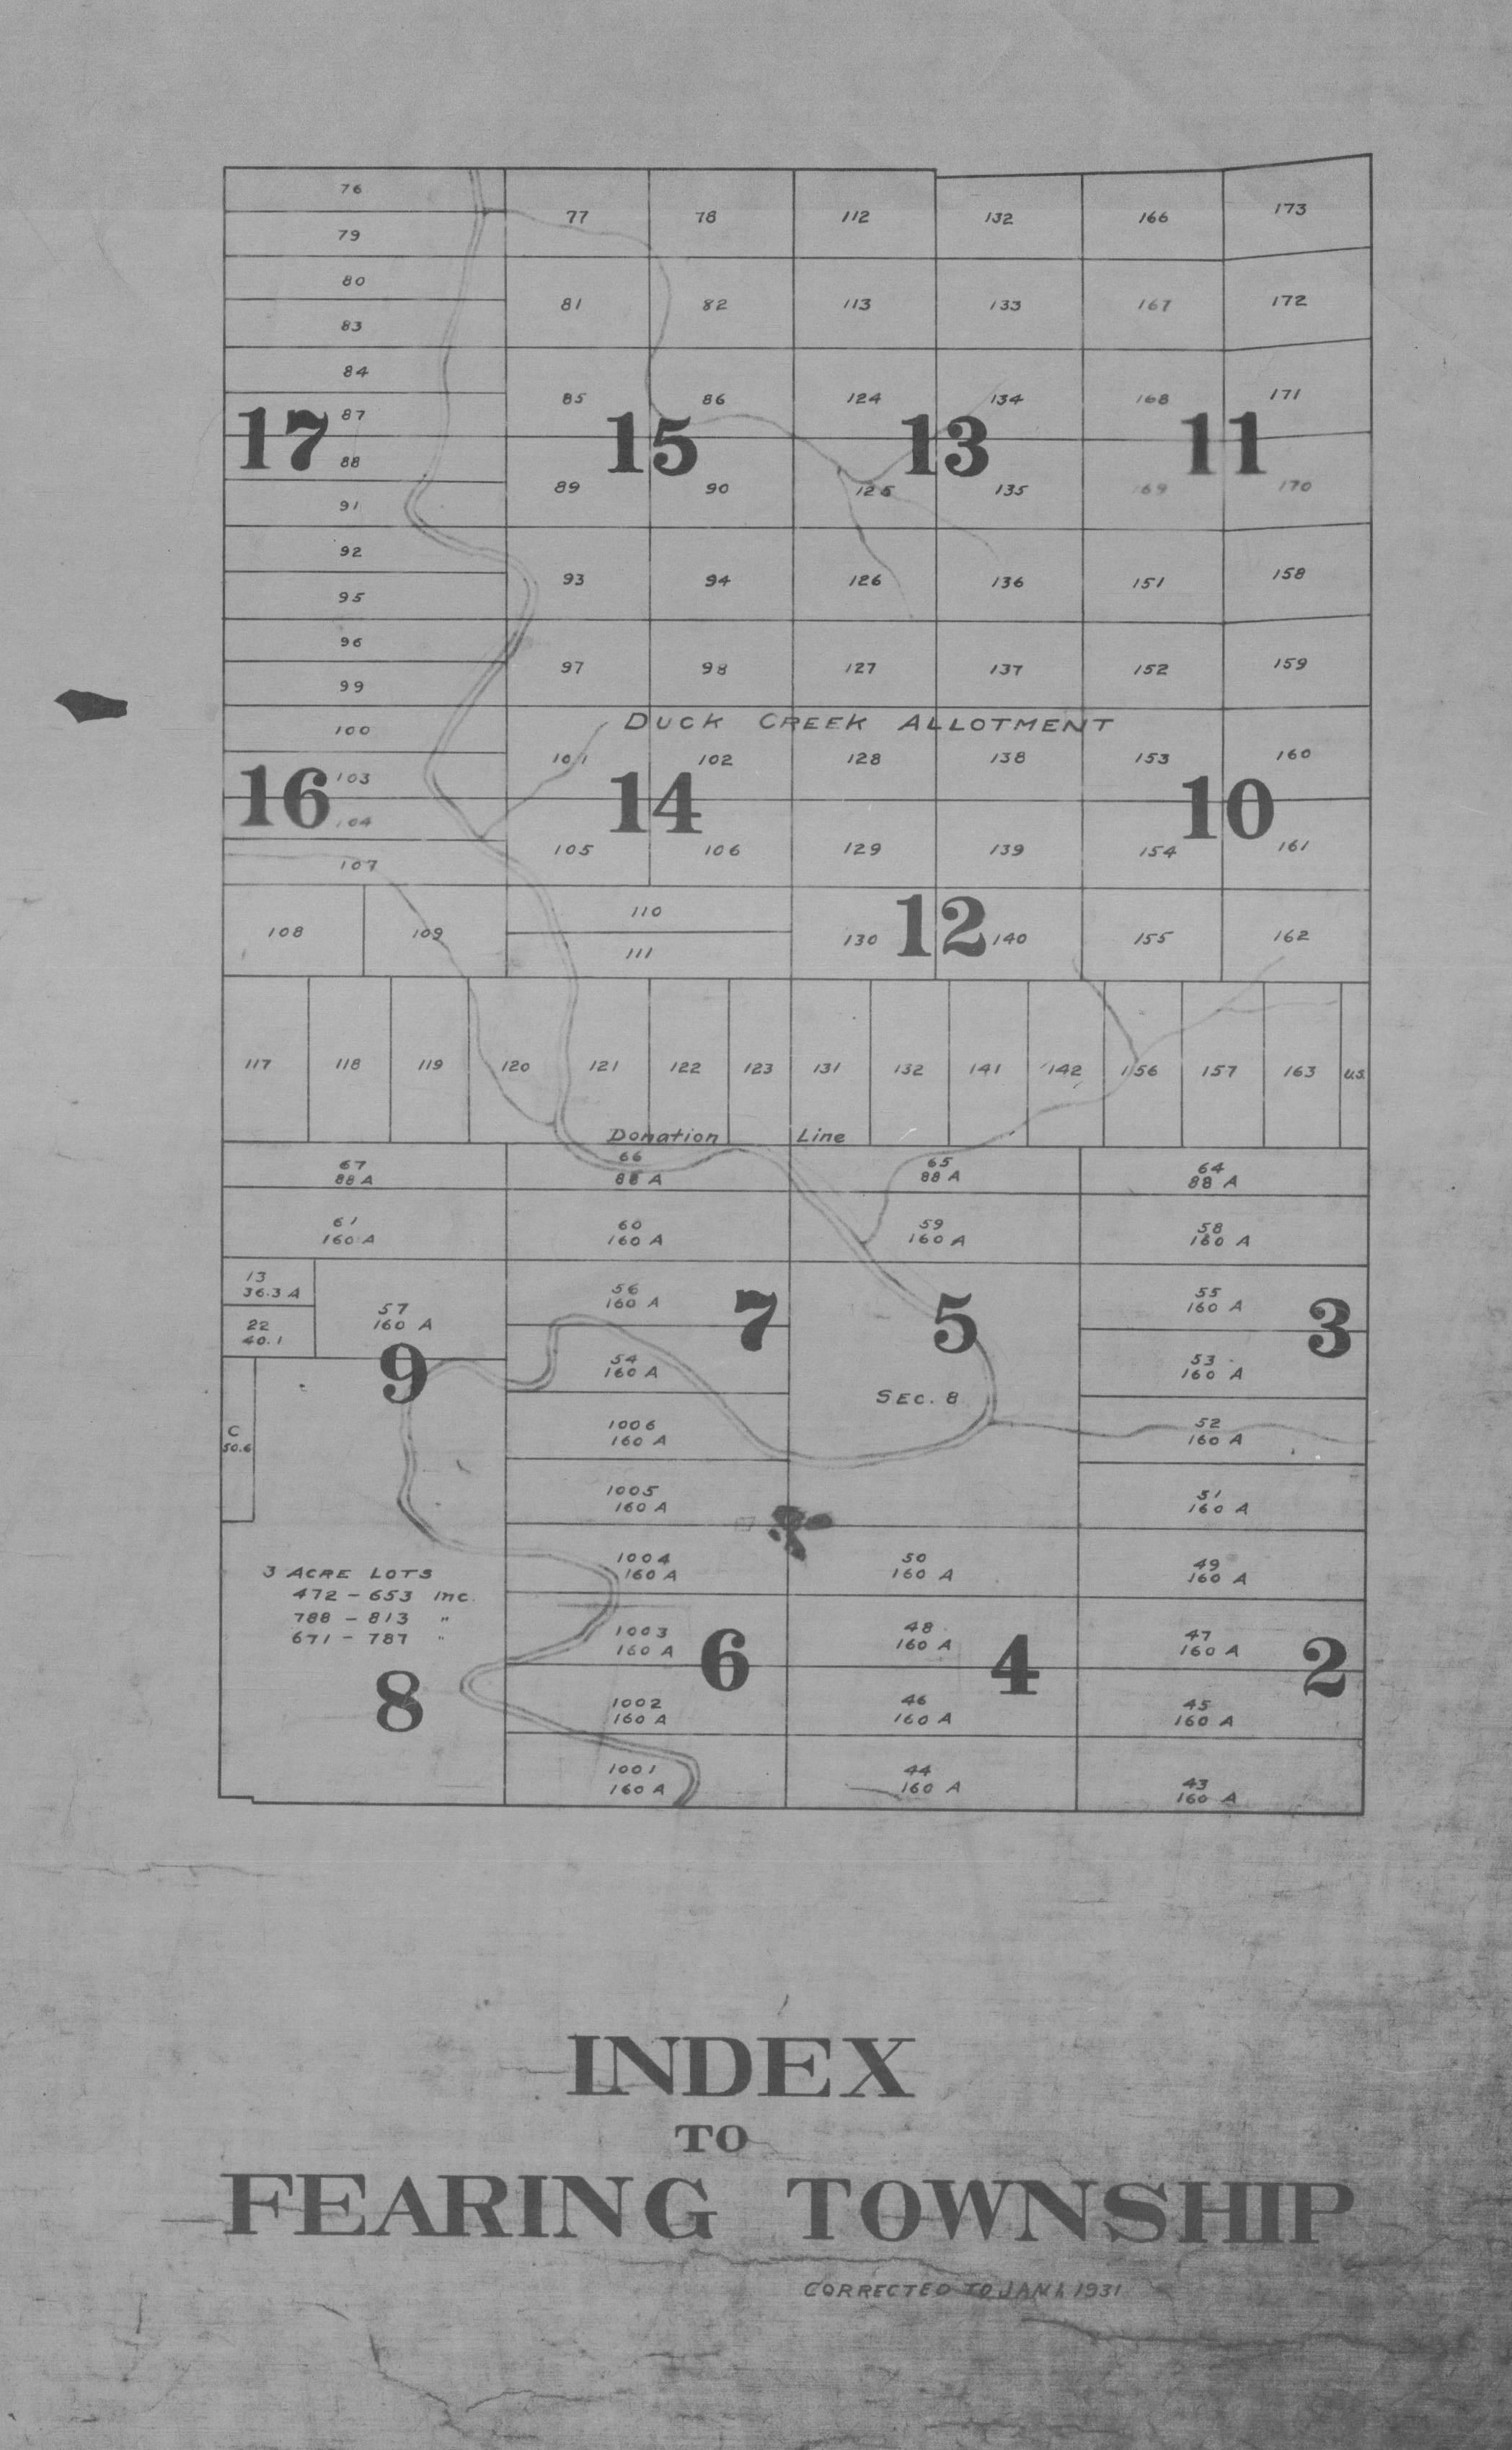 76
77
78
112
132
166
173
79
80
81
82
113
133
167
172
83
84
85
86
124
134
168
171
17
87
15
13
11
88
89
90
125
135
169
170
91
92
93
94
126
136
151
158
95
96
97
98
127
137
152
159
99
DUCK CREEK ALLOTMENT
100
101
102
128
138
153
160
16
103
14
10
104
105
106
129
139
154
161
107
108
109
110
111
130
12
140
155
162
117
118
119
120
121
122
123
131
132
141
142
156
157
163
U.S.
Donation Line
67
88 A
66
88 A
65
88 A
64
88 A
61
160 A
60
160 A
59
160 A
58
160 A
13
36.3 A
22
40.1
57
160 A
56
160 A
7
5
55
160 A
3
9
54
160 A
SEC. 8
53
160 A
C
50.6
1006
160 A
52
160 A
1005
160 A
51
160 A
1004
160 A
50
160 A
49
160 A
3 ACRE LOTS
472 - 653 Inc.
788 - 813 "
671 - 787 "
1003
160 A
6
48
160 A
4
47
160 A
2
8
1002
160 A
46
160 A
45
160 A
1001
160 A
44
160 A
43
160 A
INDEX
TO
FEARING TOWNSHIP
CORRECTED TO JAN 1, 1931